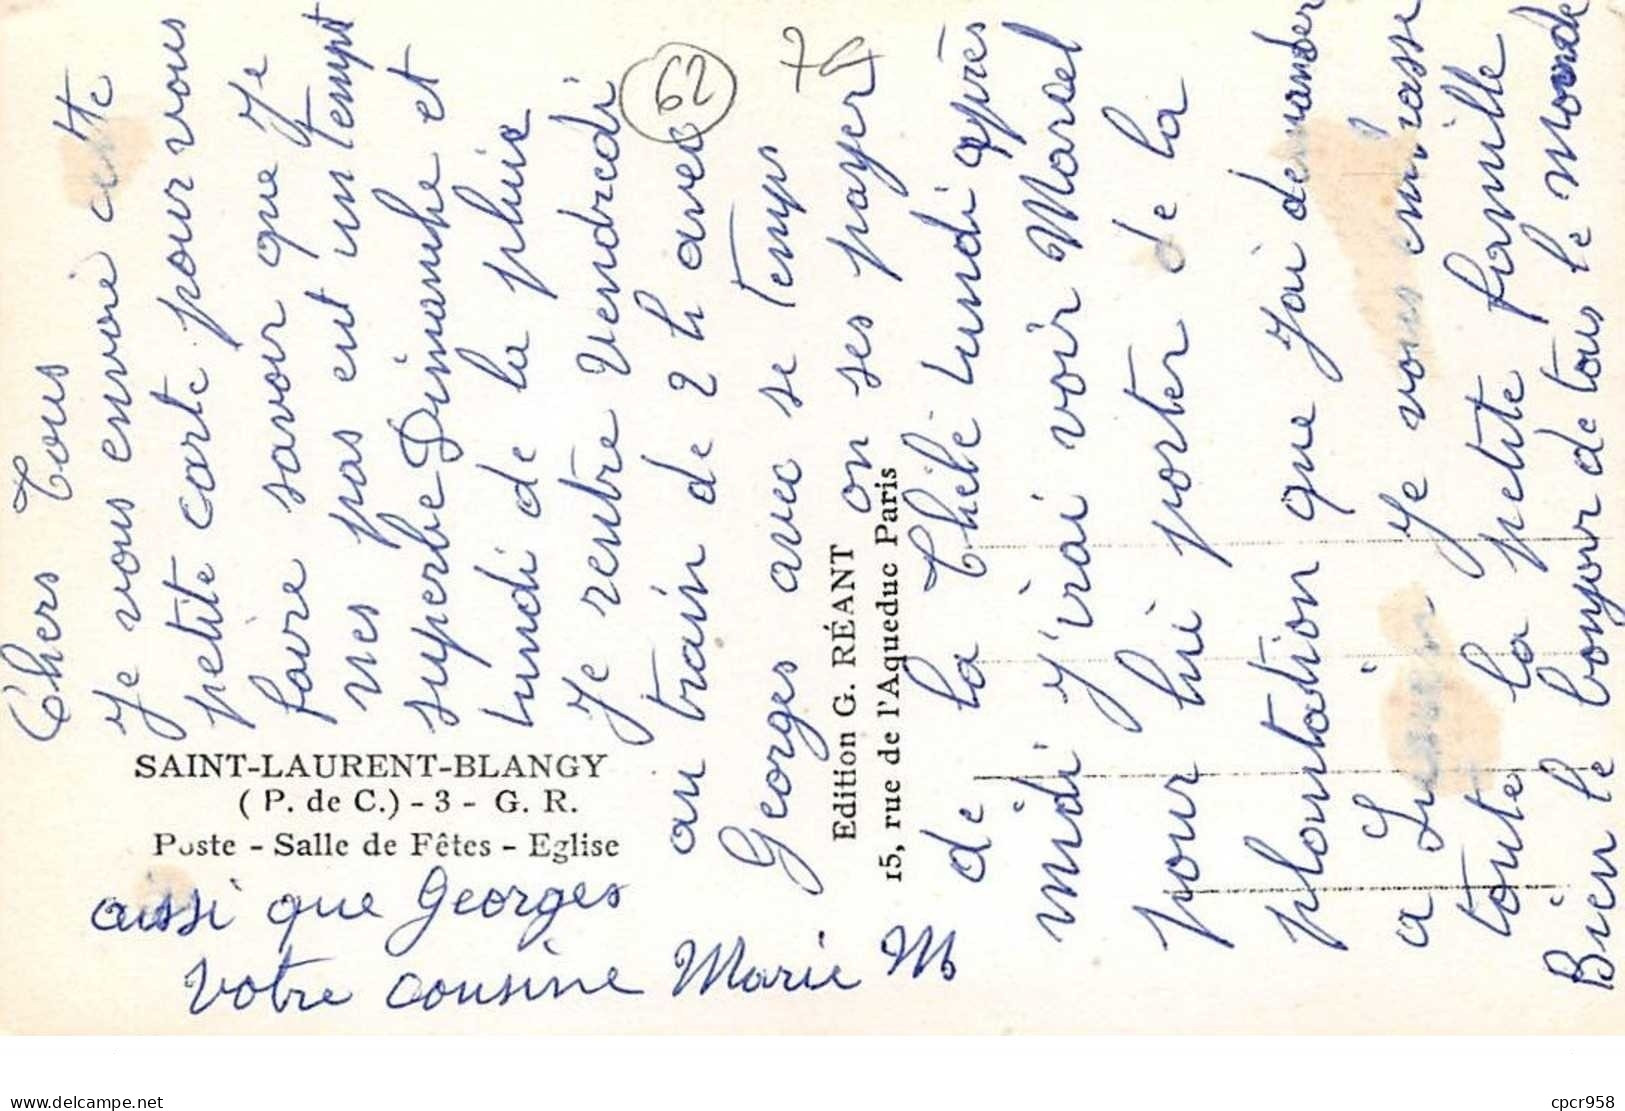 Chers Tous
Je vous envoie cette
petite carte pour vous
faire savoir que Je
nes pas eut un Tempt
superbe Dimanche et
Lundi de la pluie
Je rentre Vendredi
au train de 2 h avec
Georges avec se Temps
on ses payer
de la Lundi après
midi J'irai voir Marcel
pour lui porter de la
plantation que J'ai demander
a Lucien Je vous embrasse
toute la petite famille
Bien le bonjour de tous le monde
aussi que Georges
Votre cousine Marie M
SAINT-LAURENT-BLANGY
( P. de C.) - 3 - G. R.
Poste - Salle de Fêtes - Eglise
Edition G. RÉANT
15, rue de l'Aqueduc Paris
62
cpcr958